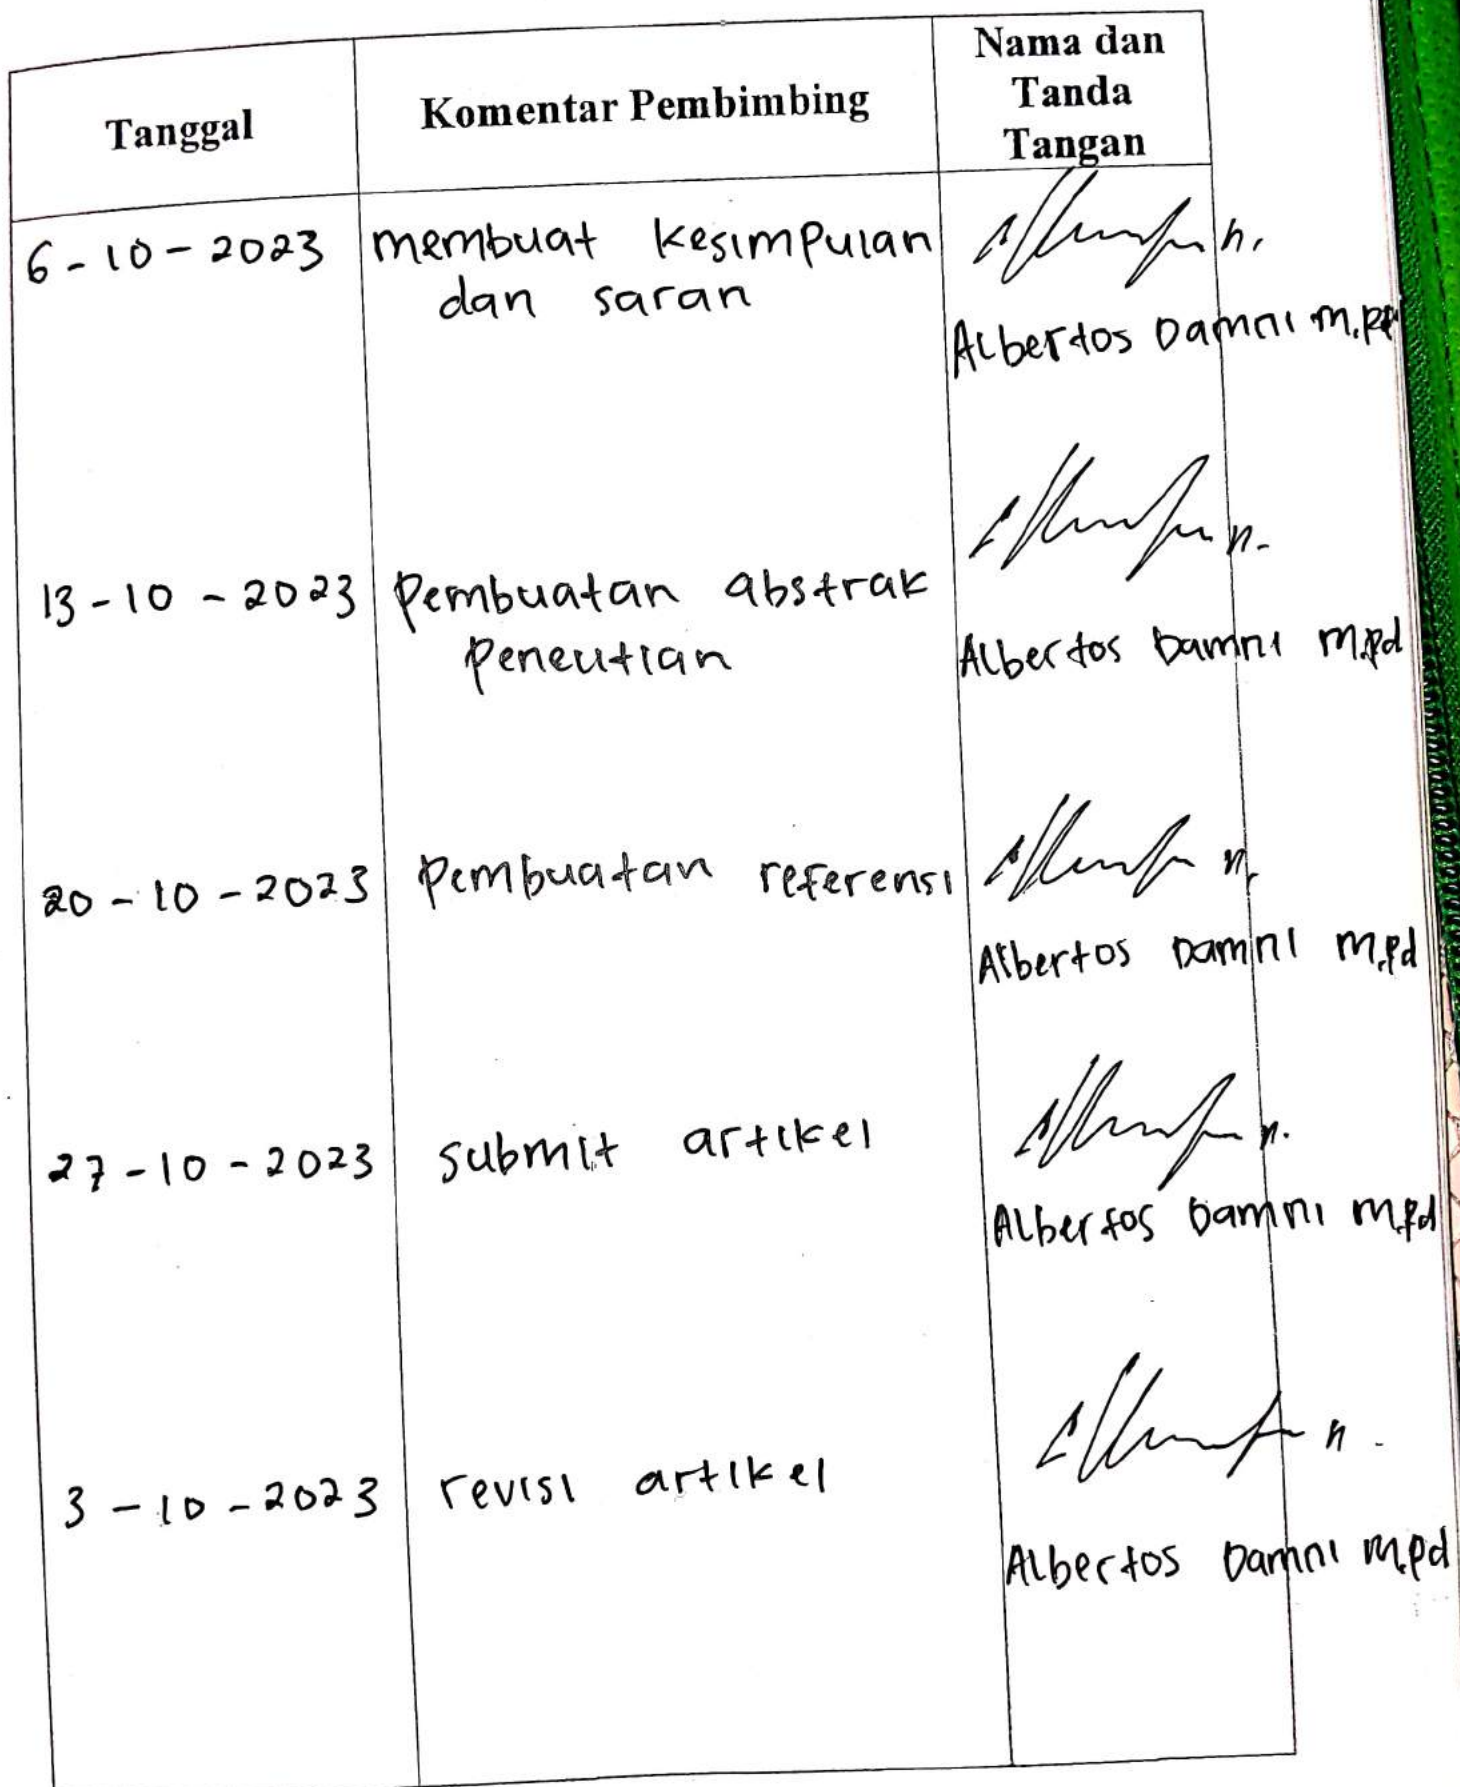 Tanggal
Komentar Pembimbing
Nama dan
Tanda
Tangan
6-10-2023
membuat kesimpulan
dan saran
Albertos Damni M.Pd
13-10-2023
Pembuatan abstrak
Penelitian
Albertos Damni M.Pd
20-10-2023
Pembuatan referensi
Albertos Damni M.Pd
27-10-2023
submit artikel
Albertos Damni M.Pd
3-10-2023
revisi artikel
Albertos Damni M.Pd